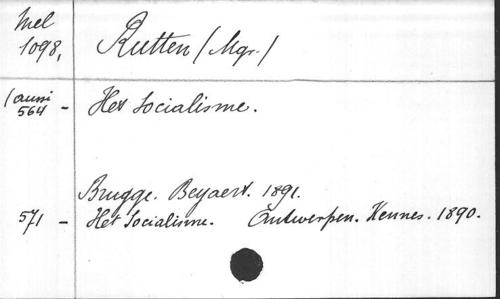 Mel
1098, Rutten (Mgr.)
(aussi
564 - Het Socialisme.
Brugge. Beyaert. 1891.
571 - Het Socialisme. Antwerpen. Hennes. 1890.